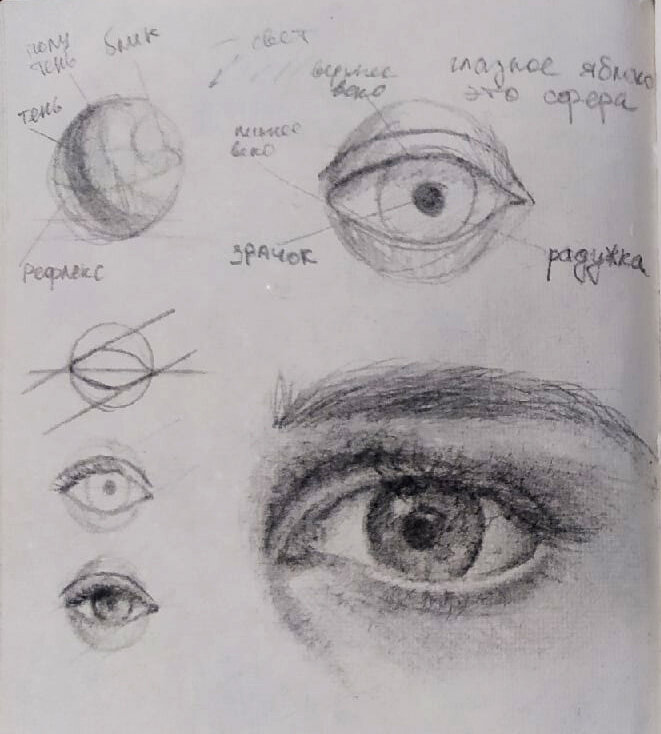 полу
тень
блик
свет
тень
рефлекс
верхнее
веко
нижнее
веко
глазное яблоко
это сфера
зрачок
радужка